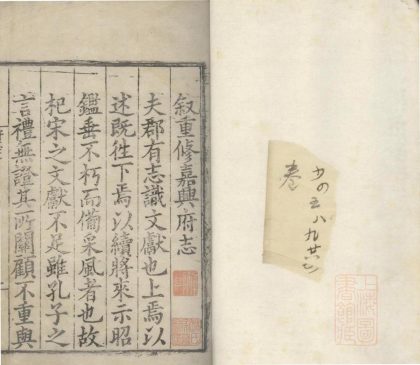 上海圖
書館藏
卷
叙重修嘉興府志
夫郡有志識文獻也上焉以
述既徃下焉以續將來示昭
鑑垂不朽而備采風者也故
杞宋之文獻不足雖孔子之
言禮無證其所關顧不重與